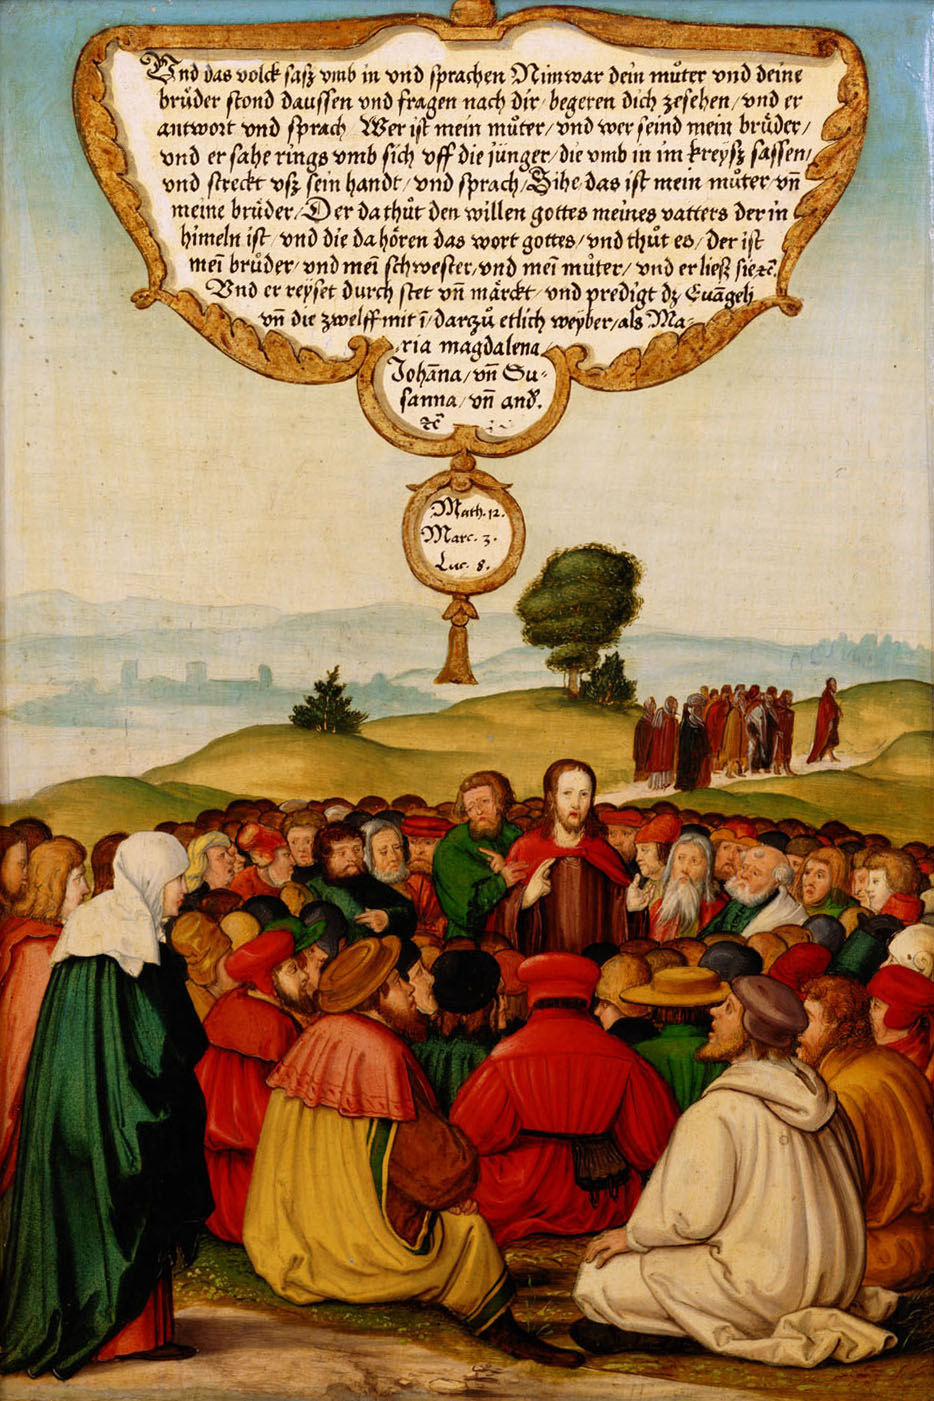 Und das volck sasz vmb in vnd sprachen Nimwar dein můter vnd deine
brůder stond daussen vnd fragen nach dir/begeren dich zesehen/vnd er
antwort vnd sprach/Wer ist mein můter/vnd wer seind mein brůder/
vnd er sahe rings vmb sich vff die jünger/die vmb in im kreysz sassen/
vnd streckt vsz sein handt/vnd sprach/Sihe das ist mein můter/vn̄
meine brůder/Der da thůt den willen gottes meines vatters der in
himeln ist/vnd die da hören das wort gottes/vnd thůt es/der ist
mei͂ brůder/vnd mei͂ schwester/vnd mei͂ můter/vnd er liesz sie ꝛc̃.
Vnd er reyset durch stet vn̄ märckt/vnd predigt dz Eua͂geli
vn̄ die zwelff mit i͂/darzů etlich weyber/als Ma-
ria magdalena/
Joha͂na/vn̄ Su-
sanna/vn̄ and̾.
ꝛc̃
Math. 12.
Marc. 3.
Luc. 8.